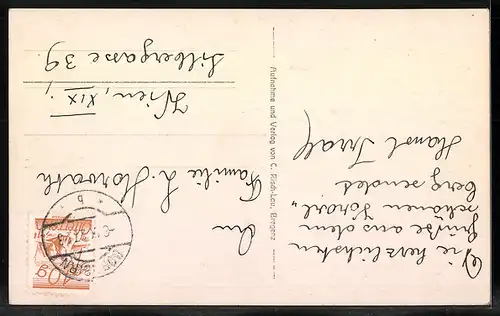 Die herzlichsten
Grüße aus dem
schönen "Vorarl"
berg sendet
Hansl
Aufnahme und Verlag von C. Risch-Lau, Bregenz
An
Familie L. Horvath
Wien, XIX.,
Silbergasse 39.
b